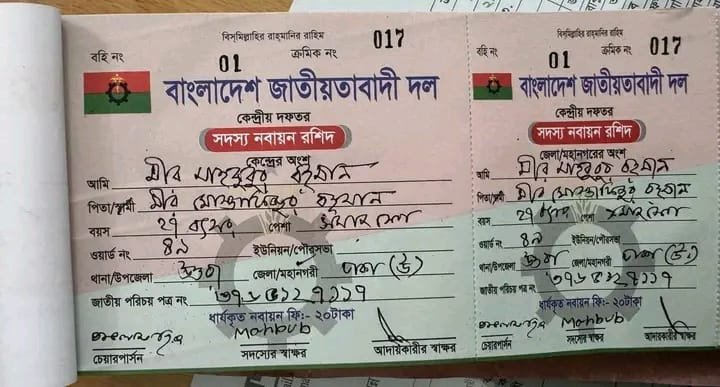 বিসমিল্লাহির রাহমানির রাহিম
বহি নং 01 ক্রমিক নং 017
বাংলাদেশ জাতীয়তাবাদী দল
কেন্দ্রীয় দফতর
সদস্য নবায়ন রশিদ
কেন্দ্রের অংশ
আমি মীর মাহবুবুর রহমান
পিতা/স্বামী মীর রহমান
বয়স ২৭ বৎসর পেশা
ওয়ার্ড নং ৪৯ ইউনিয়ন/পৌরসভা
থানা/উপজেলা উত্তরা জেলা/মহানগরী ঢাকা (উঃ)
জাতীয় পরিচয় পত্র নং
ধার্যকৃত নবায়ন ফি:- ২০টাকা
Mahbub
চেয়ারপার্সন সদস্যের স্বাক্ষর আদায়কারীর স্বাক্ষর
বিসমিল্লাহির রাহমানির রাহিম
বহি নং 01 ক্রমিক নং 017
বাংলাদেশ জাতীয়তাবাদী দল
কেন্দ্রীয় দফতর
সদস্য নবায়ন রশিদ
জেলা/মহানগরের অংশ
আমি মীর মাহবুবুর রহমান
পিতা/স্বামী মীর রহমান
বয়স ২৭ পেশা
ওয়ার্ড নং ৪৯ ইউনিয়ন/পৌরসভা
থানা/উপজেলা উত্তরা জেলা/মহানগরী ঢাকা (উঃ)
জাতীয় পরিচয় পত্র নং
ধার্যকৃত নবায়ন ফি:- ২০টাকা
Mahbub
চেয়ারপার্সন সদস্যের স্বাক্ষর